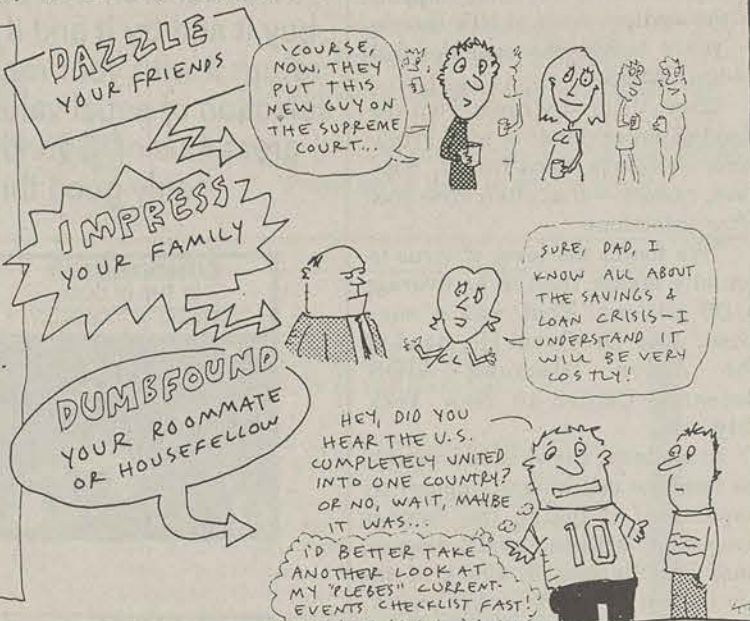 DAZZLE
YOUR FRIENDS
'COURSE,
NOW, THEY
PUT THIS
NEW GUY ON
THE SUPREME
COURT...
IMPRESS
YOUR FAMILY
SURE, DAD, I
KNOW ALL ABOUT
THE SAVINGS &
LOAN CRISIS—I
UNDERSTAND IT
WILL BE VERY
COSTLY!
DUMBFOUND
YOUR ROOMMATE
OR HOUSEFELLOW
HEY, DID YOU
HEAR THE U.S.
COMPLETELY UNITED
INTO ONE COUNTRY?
OR NO, WAIT, MAYBE
IT WAS...
10
I'D BETTER TAKE
ANOTHER LOOK AT
MY "PLEBES" CURRENT-
EVENTS CHECKLIST FAST!